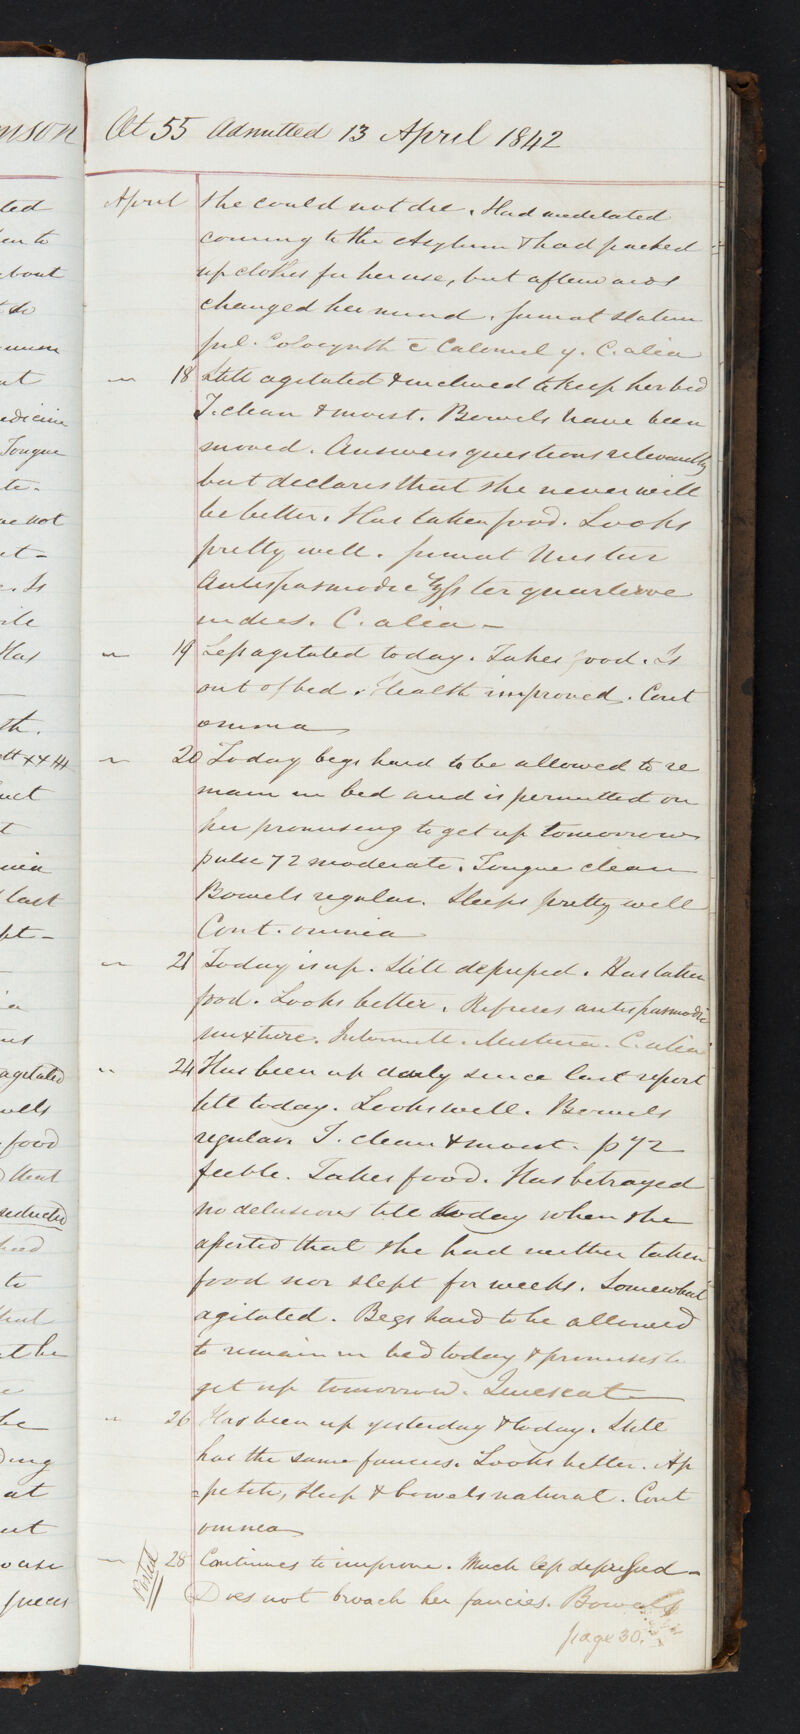 mson Æt 55 Admitted 13 April 1842
April she could not die. Had meditated
coming to the Asylum & had packed
up clothes for her use, but afterwards
changed her mind. Sumat statim
pil. Colocynth c Calomel ij. C. alia
" 18 Still agitated & inclined to keep her bed
T. clean & moist. Bowels have been
moved. Answers questions relevantly
but declares that she never will
be better. Has taken food. Looks
pretty well. Sumat Mistur
Antispasmodic ter quaterve
indies. C. alia -
" 19 Less agitated today. Takes food. Is
out of bed. Health improved. Cont
omnia
" 20 Today begs hard to be allowed to re
main in bed and is permitted on
her promising to get up tomorrow
pulse 72 moderate. Tongue clean
Bowels regular. Sleeps pretty well
Cont. omnia
" 21 Today is up. Still depressed. Has taken
food. Looks better. Refuses antispasmodic
mixture. Intermitt. Mistura. C. alia
" 24 Has been up daily since last report
till today. Looks well. Bowels
regular T. clean & moist. p 72
feeble. Takes food. Has betrayed
no delusions till today when she
asserted that she had neither taken
food nor slept for weeks. Somewhat
agitated. Begs hard to be allowed
to remain in bed today & promises to
get up tomorrow. Quiescat
" 26 Has been up yesterday & today. Still
has the same fancies. Looks better. Ap
=petite, sleep & bowels natural. Cont
omnia
" 28 Continues to improve. Much less depressed -
Posted
Does not broach her fancies. Bowels
page 30.